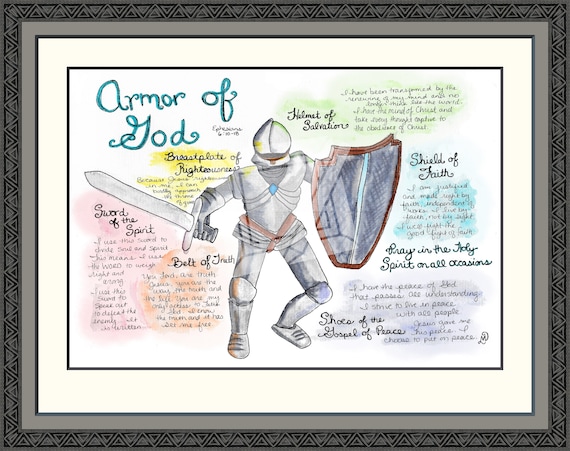 Armor of
God
Ephesians
6:10-18
Helmet of
Salvation
I have been transformed by the
renewing of my mind and no
longer think like the world.
I have the mind of Christ and
take every thought captive to
the obedience of Christ.
Breastplate of
Righteousness
Because I have righteousness
in me I can
boldly approach
throne
Shield of
Faith
I am justified
and made right by
faith, independent of
works. I live by
faith, not by sight.
I will fight the
good fight of faith.
Sword
of the
Spirit
I use this sword to
divide soul and spirit
This means I use
the WORD to weigh
right and
wrong
I use this
sword to
speak out
to defeat the
enemy. It
is written
Belt of Truth
You God, are truth
Jesus, you are the
way, the truth, and
the life. You are my
only access to
God. I know
the truth and it has
set me free
Pray in the Holy
Spirit on all occasions
Shoes of the
Gospel of Peace
I have the peace of God
that passes all understanding.
I strive to live in peace
with all people
Jesus gave me
this peace. I
choose to put on peace.